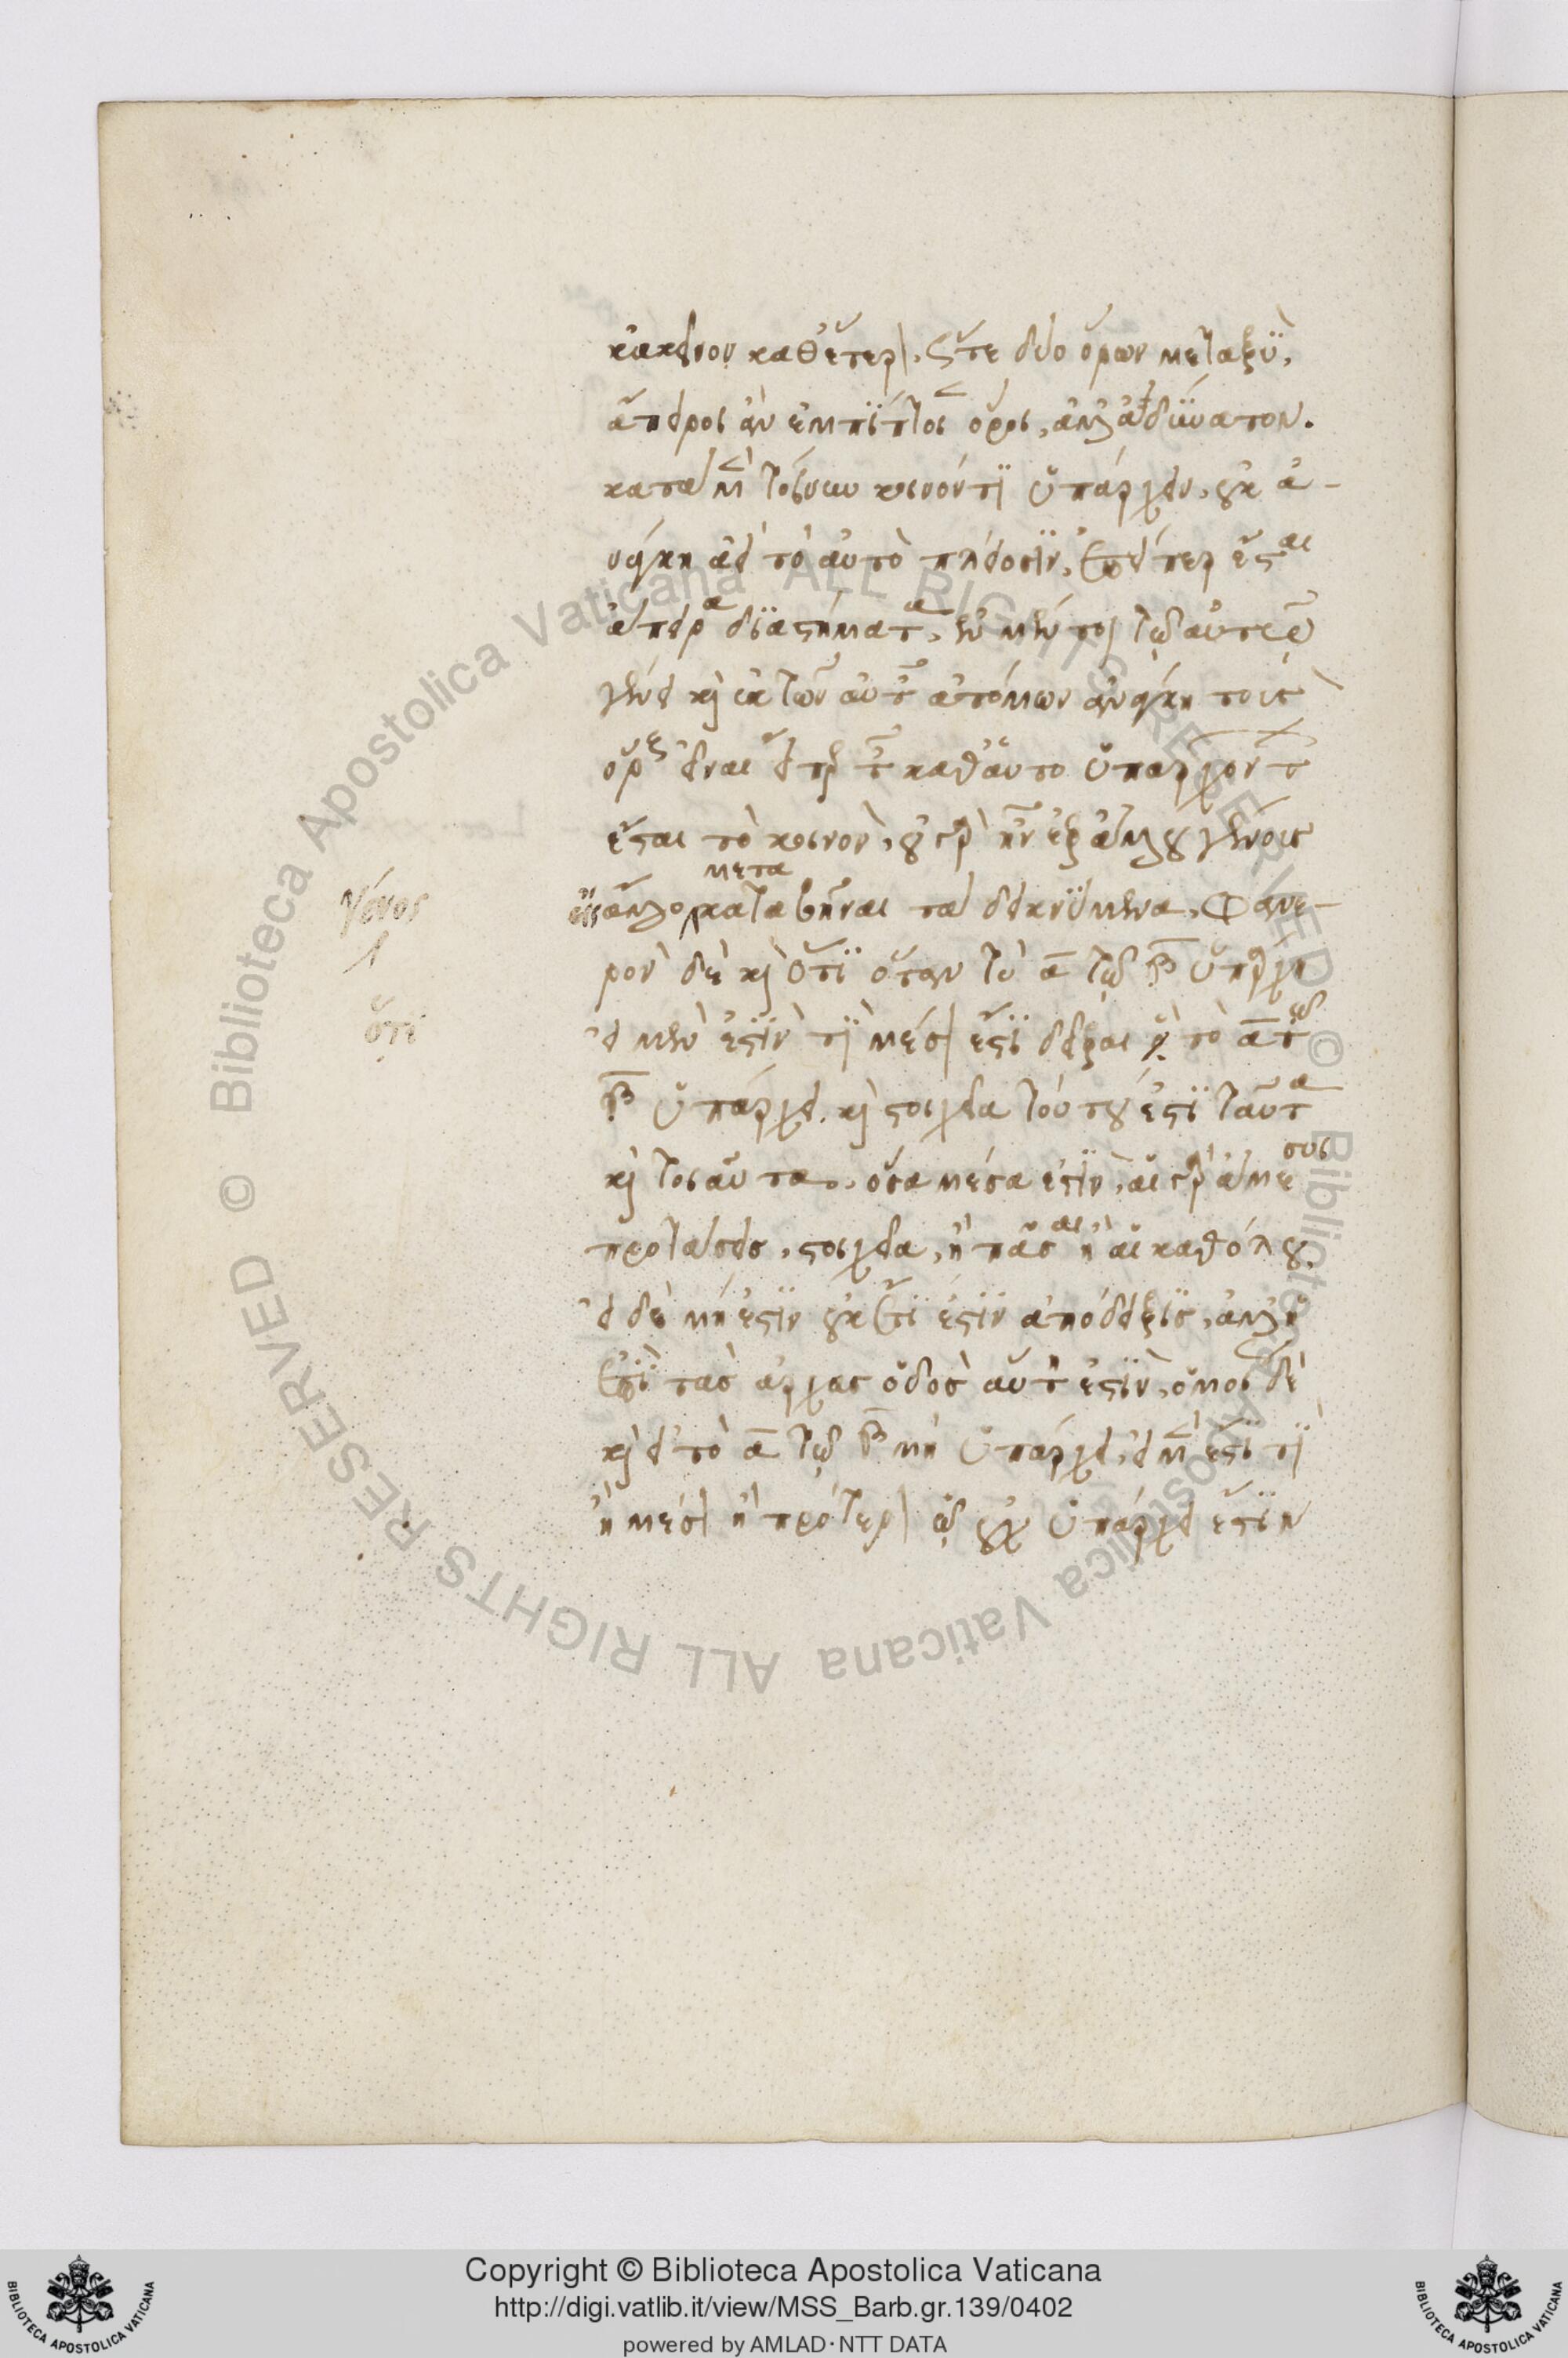 κἀκεῖνον καθ' ἕτερον, ὥστε δύο ὅρων μεταξὺ,
ἄπειροι ἂν ἐμπίπτοιεν ὅροι, ἀλλ' ἀδύνατον.
κατὰ μὲν τοίνυν κοινόν τι ὑπάρχειν, οὐκ ἀ-
νάγκη ἀεὶ τὸ αὐτὸ πλείοσιν, ἐπείπερ ἔσται
ἄπειρα διαστήματα, ἐν μέντοι τῷ αὐτῷ
γένει καὶ ἐκ τῶν αὐτῶν ἀτόμων ἀνάγκη τοὺς
ὅρους εἶναι εἴπερ τῶν καθ' αὑτὸ ὑπαρχόντων
ἔσται τὸ κοινὸν, οὐ γὰρ ἦν ἐξ ἄλλου γένους
εἰς ἄλλο μετα καταβῆναι τὰ δεικνύμενα, Φανε-
ρὸν δὲ καὶ ὅτι ὅταν τὸ α τῷ β ὑπάρχη
εἰ μὲν ἐστὶν τὶ μέσον ἔστι δεῖξαι ὅτι τὸ α τῷ
β ὑπάρχει. καὶ στοιχεῖα τούτου ἐστὶ ταῦτα
καὶ τοσαῦτα, ὅσα μέσα ἐστὶν, αἱ γὰρ ἄμεσοι
προτάσεις, στοιχεῖα, ἢ πᾶσαι ἢ αἱ καθόλου,
εἰ δὲ μή ἐστιν οὐκέτι ἐστὶν ἀπόδειξις, ἀλλ' ἡ
ἐπὶ τὰς ἀρχὰς ὁδὸς αὕτη ἐστὶν, ὁμοίως δὲ
καὶ εἰ τὸ α τῷ β μὴ ὑπάρχει, εἰ μὲν ἐστί τι
ἢ μέσον ἢ πρότερον ᾧ οὐχ ὑπάρχει ἔστιν
γένος
ὅτι
© Biblioteca Apostolica Vaticana ALL RIGHTS RESERVED © Biblioteca Apostolica Vaticana ALL RIGHTS RESERVED
BIBLIOTECA APOSTOLICA VATICANA
Copyright © Biblioteca Apostolica Vaticana
http://digi.vatlib.it/view/MSS_Barb.gr.139/0402
powered by AMLAD·NTT DATA
BIBLIOTECA APOSTOLICA VATICANA